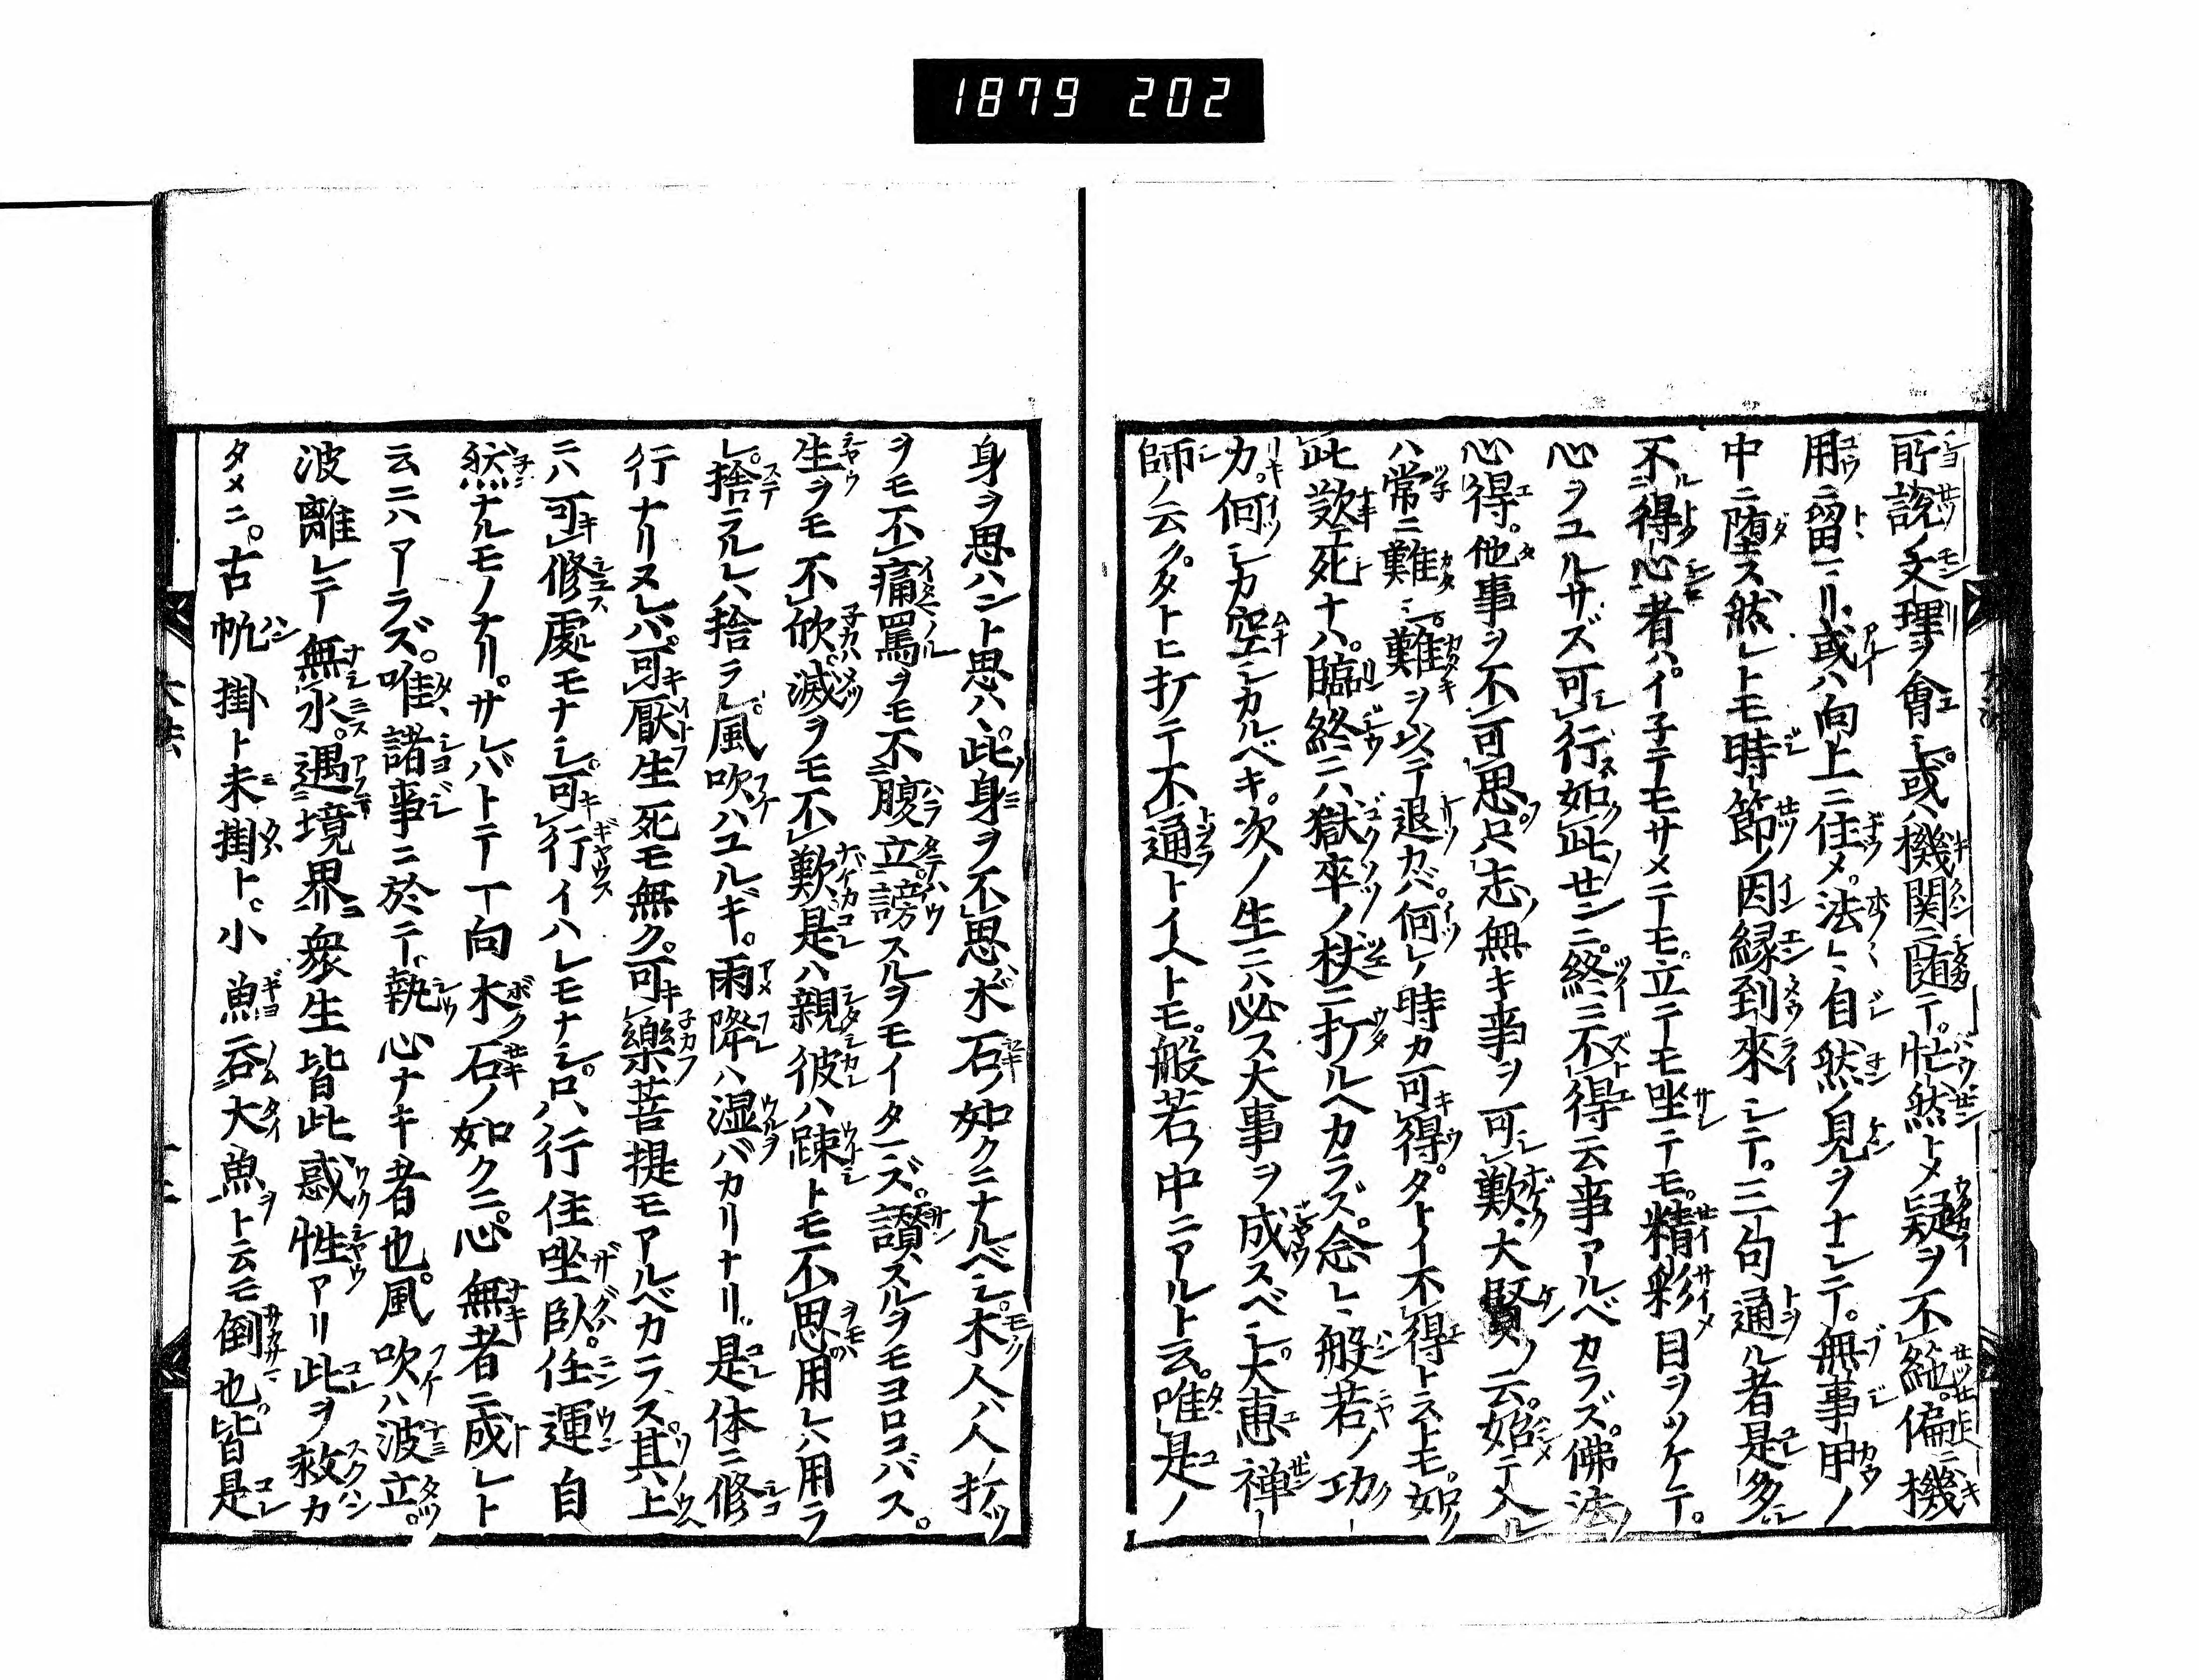 1879 202
所説ノ文理ヲ會シ。或ハ機関ニ随テ。忙然トメ疑ヲ不絶。偏ニ機
用ニ留リ。或ハ向上ニ住メ。法〻自然ノ見ヲナシテ。無事甲ノ
中ニ堕ス然レトモ時節ノ因縁到來シテ。三句通ル者是多シ
不得心者ハ。イ子テモサメテモ。立テモ坐テモ。精彩目ヲツケテ。
心ヲユルサズ可行如此セン二。終ニ不得云事アルベカラズ。佛法ノ
心得。他事ヲ不可思只志ノ無キ事ヲ可歎。大賢ノ云。始テ入ル
ハ常ニ難シ。難ヲ以テ退カバ。何レノ時カ可得。タトイ不得トストモ。如
此歎エ死ナハ。臨終ニハ獄卒ノ杖ニ打ルヘカラズ。念〻般若ノ功
力。何シカ空シカルベキ。次ノ生ニハ必ス大事ヲ成スベシ。大惠禅
師ノ云ク。タトヒ打テ不通トイヘトモ。般若ノ中ニアルト云。唯是ノ
身ヲ思ハント思ハヽ。此身ヲ不思木石ノ如クニナルベシ。木人ハ人ノ打ツ
ヲモ不痛罵ヲモ不腹立謗スルヲモイタマズ。讃スルヲモヨロコバス。
生ヲモ不欣。滅ヲモ不歎是ハ親彼ハ踈トモ不思用レハ用ラ
レ。捨ラルレハ捨ラレ。風吹ハユルギ。雨降ハ湿バカリナリ。是体ニ修
行ナリヌレバ。可厭生死モ無ク。可樂菩提モアルベカラス。其上
ニハ可修處モナシ。可行イハレモナシ。只、行住坐臥。任運自
然ナルモノナリ。サレバトテ一向木石ノ如クニ。心無者ニ成レト
云ニハアラズ。唯諸事ニ於テ、執心ナキ者也。風吹ハ波立。
波離レテ無水。遇境界衆生皆此惑性アリ此ヲ救カ
タメニ。古帆掛ト未掛ト。小魚呑大魚ト云モ倒也。皆是